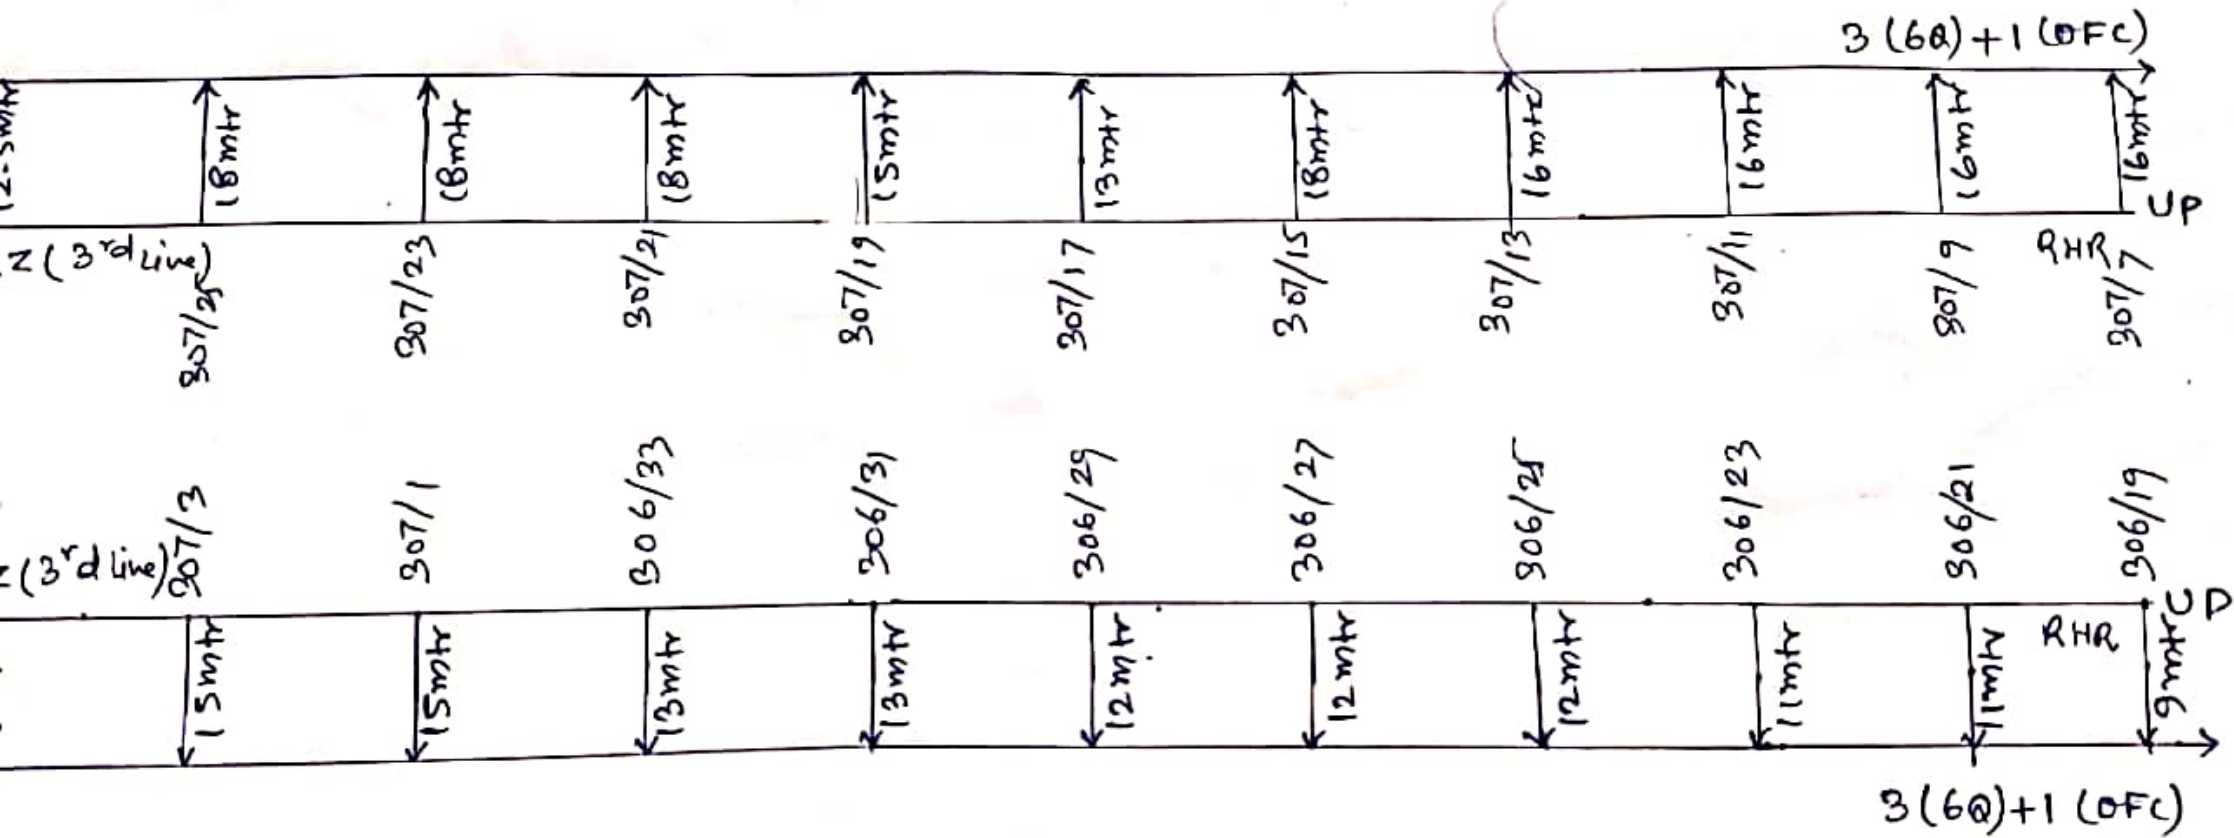 3 (6Q) + 1 (OFC)
18mtr
18mtr
18mtr
15mtr
13mtr
18mtr
16mtr
16mtr
16mtr
16mtr
UP
Z (3rd Line)
RHR
307/25
307/23
307/21
307/19
307/17
307/15
307/13
307/11
307/9
307/7
307/3
307/1
306/33
306/31
306/29
306/27
306/25
306/23
306/21
306/19
(3rd Line)
UP
RHR
15mtr
15mtr
13mtr
13mtr
12mtr
12mtr
12mtr
11mtr
11mtr
9mtr
3 (6Q) + 1 (OFC)